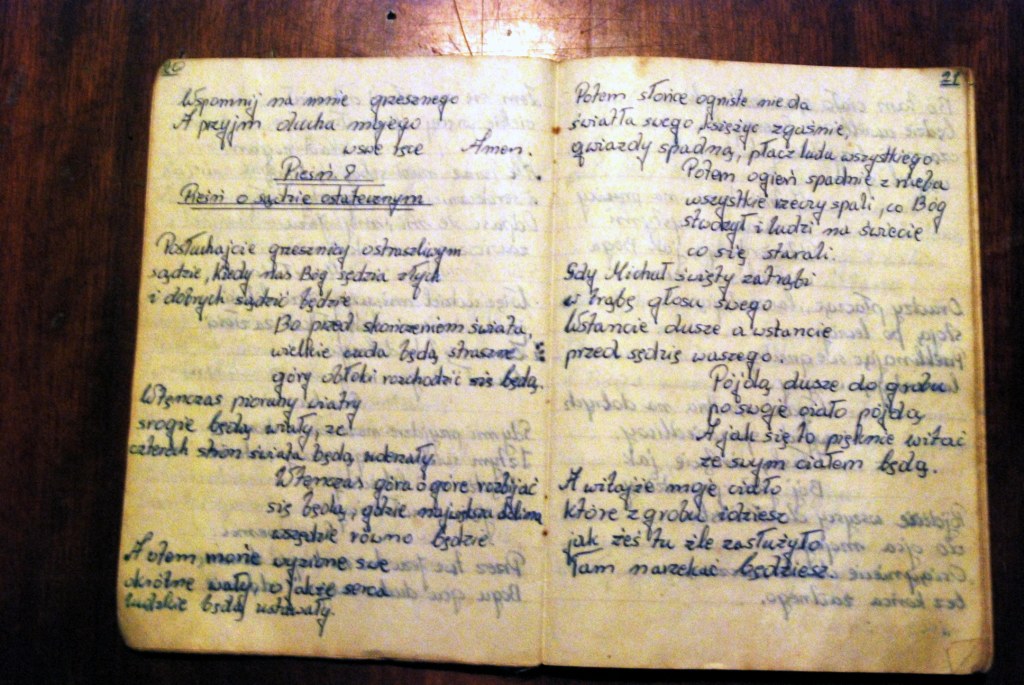 20
Wspomnij na mnie grzesznego
A przyjm ducha mojego
Amen.
Pieśń 8.
Pieśń o sądzie ostatecznym
Posłuchajcie grzesznicy ostraszliwym
sądzie, kiedy nas Bóg sędzia złych
i dobrych sądzić będzie
Bo przed skończeniem świata,
wielkie cuda będą straszne
góry obłoki rozchodzić się będą.
Wtenczas pioruny wiatry
srogie będą wiały, ze
czterech stron świata będą uderzały.
Wtenczas góra o górę rozbijać
się będą, gdzie największa dolina
wszędzie równo będzie
A potem morze wyzione swe
okrótne wały, to jakże serca
ludzkie będą ustawały.
21
Potem słońce ogniste nie da
światła swego, księżyc zgaśnie,
gwiazdy spadną, płacz ludu wszystkiego.
Potem ogień spadnie z nieba
wszystkie rzeczy spali, co Bóg
stworzył i ludzi na świecie
co się starali.
Gdy Michał święty zatrąbi
w trąbę głosu swego
Wstańcie dusze a wstańcie
przed sędzię waszego
Pójdą dusze do grobu
po swoje ciało pójdą,
A jak się to pięknie witać
ze swym ciałem będą.
A witajże moje ciało
które z grobu idziesz
jak żeś tu źle zasłużyło
Tam narzekać będziesz.